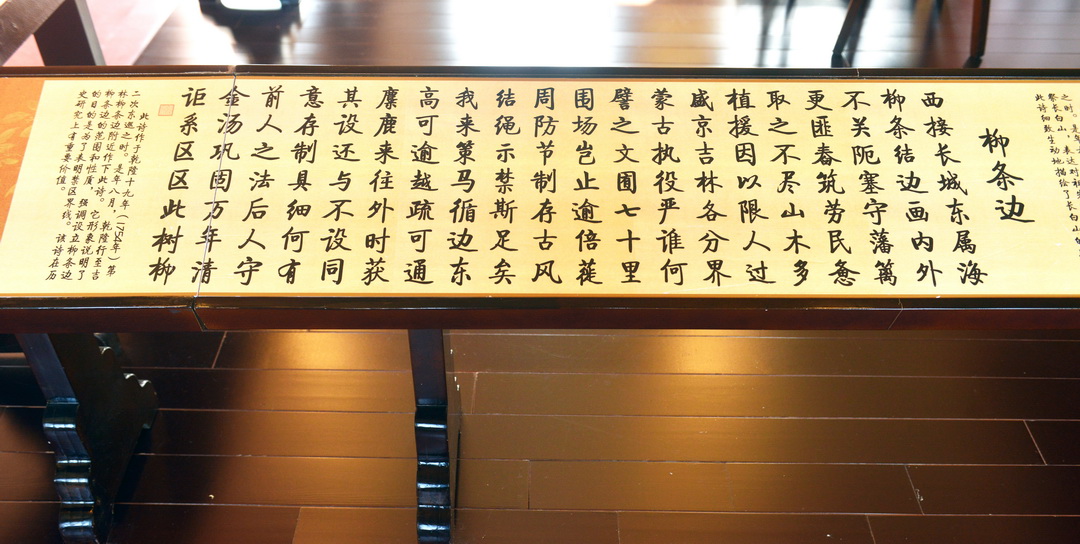 之时。是年
祭长白山，表达对祖
此诗细致生动地描绘了长白山
柳条边
西接长城东属海
柳条结边画内外
不关阨塞守藩篱
更匪春筑劳民惫
取之不尽山木多
植援因以限人过
盛京吉林各分界
蒙古执役严谁何
譬之文囿七十里
围场岂止逾倍蓰
周防节制存古风
结绳示禁斯足矣
我来策马循边东
高可逾越疏可通
麋鹿来往外时获
其设还与不设同
意存制具细何有
前人之法后人守
金汤巩固万年清
讵系区区此树柳
此诗作于乾隆十九年（1754年）第
二次东巡之时。是年八月，乾隆行至吉
林柳条边附近作下此诗。它形象说明了
柳条边的范围和性质，强调设立柳条边
的目的是为了表明禁区界线。该诗在历
史研究上有重要价值。